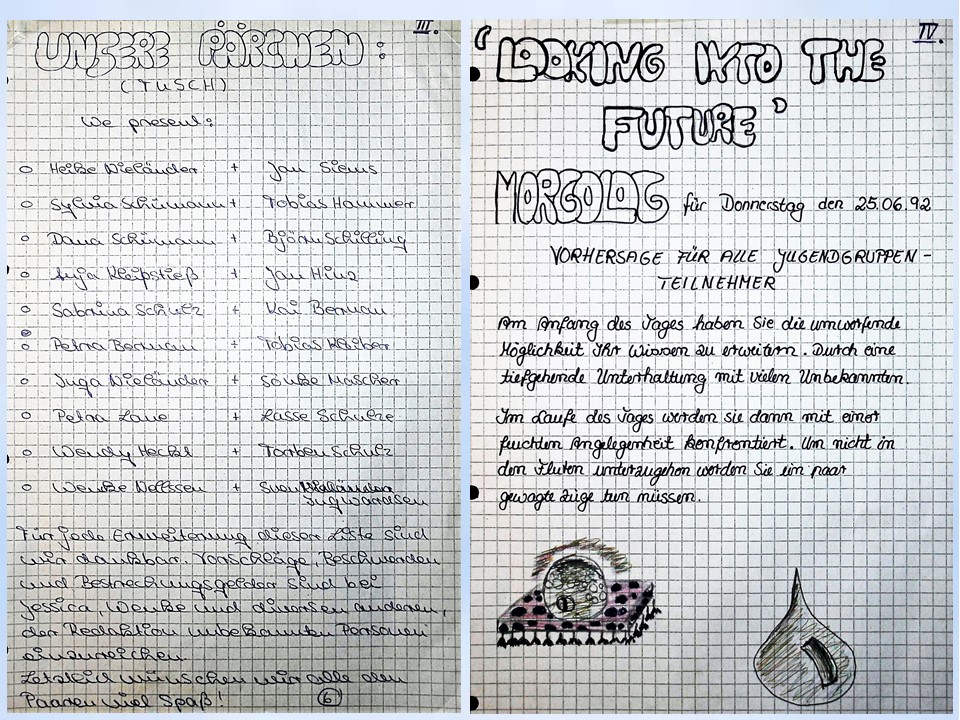 III.
UNSERE PÄRCHEN:
(TUSCH)
We present:
o Heike Wieländer + Jan Siems
o Sylvia Schürmann + Tobias Hammer
o Dana Schürmann + Björn Schilling
o Anja Kleipstieß + Jan Hinz
o Sabrina Schulz + Kai Berman
o Petra Berman + Tobias Kleiber
o Inga Wieländer + Sönke Mascher
o Petra Laue + Lasse Schulze
o Wendy Heckt + Torben Schulz
o Wenke Nottsen + Sven
Ingwardsen
Für jede Erweiterung dieser Liste sind
wir dankbar. Vorschläge, Beschwerden
und Bestechungsgelder sind bei
Jessica, Wenke und diversen anderen,
der Redaktion unbekannten Personen
einzureichen.
Letztlich wünschen wir alle den
Paaren viel Spaß! 6
IV.
'LOOKING INTO THE
FUTURE'
MORGOLOG für Donnerstag den 25.06.92
VORHERSAGE FÜR ALLE JUGENDGRUPPEN-
TEILNEHMER
Am Anfang des Tages haben Sie die umwerfende
Möglichkeit Ihr Wissen zu erweitern. Durch eine
tiefgehende Unterhaltung mit vielen Unbekannten.
Im Laufe des Tages werden sie dann mit einer
feuchten Angelegenheit konfrontiert. Um nicht in
den Fluten unterzugehen werden Sie ein paar
gewagte Züge tun müssen.